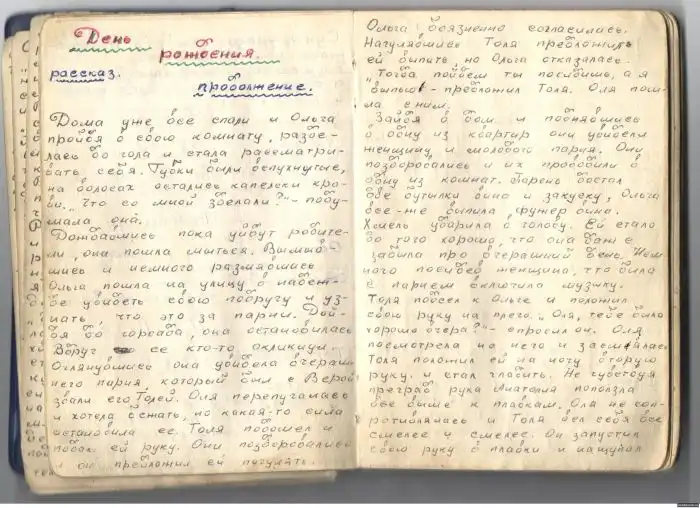 День
рождения.
рассказ.
продолжение.
Дома уже все спали и Ольга
пройдя в свою комнату, разде-
лась до гола и стала рассматри-
вать себя. Губки были вспухнутые,
на волосах остались капельки кро-
ви. "Что со мной сделали?" - поду-
мала она.
Дождавшись пока уйдут родите-
ли, она пошла мыться. Вымыв-
шись и немного размявшись
Ольга пошла на улицу в надеж-
де увидеть свою подругу и уз-
нать, что это за парни. Дой-
дя до она остановилась
Вдруг ее кто-то окликнул.
Оглянувшись она увидела вчераш-
него парня, который был с Верой
звали его Толей. Оля перепугалась
и хотела бежать, но какая-то сила
остановила ее. Толя подошел и
подал ей руку. Они поздоровались
и он предложил ей погулять.
Ольга боязненно согласилась.
Нагулявшись Толя предложил
ей выпить, но Ольга отказалась.
"Тогда пойдем ты посидишь, а я
выпью" - предложил Толя. Оля пош-
ла с ним.
Зайдя в дом и поднявшись
в одну из квартир они увидели
женщину и молодого парня. Они
поздоровались и их проводили в
одну из комнат. Парень достал
две бутылки вина и закуску, Ольга
все-же выпила фужер вина.
Хмель ударила в голову. Ей стало
до того хорошо, что она даже
забыла про вчерашний день. Нем
ного посидев женщина, что была
с парнем включила музыку.
Толя подсел к Ольге и положил
свою руку на плечо. "Оля, тебе было
хорошо вчера?" - спросил он. Оля
посмотрела на него и засмеялась
Толя положил ей на ногу вторую
руку и стал гладить. Не чувствуя
преград рука Анатолия поползла
все выше к плавкам. Оля не соп-
ротивлялась и Толя вел себя все
смелее и смелее. Он запустил
свою руку в плавки и нащупал